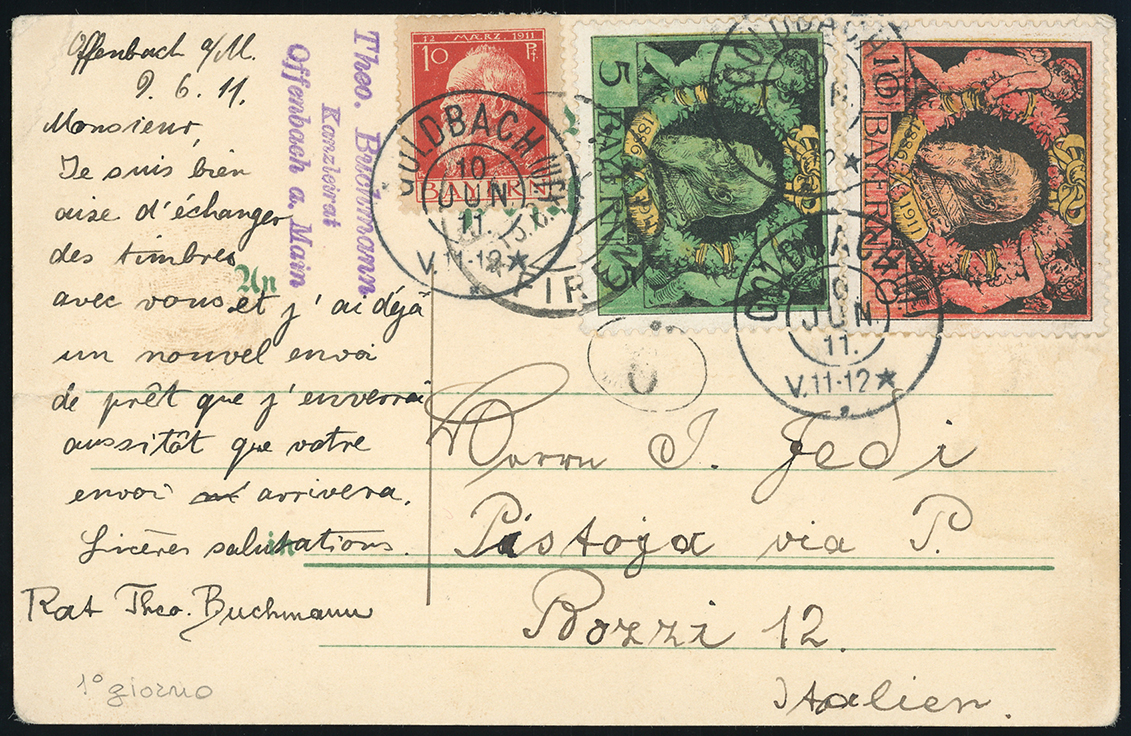 Offenbach a/M.
9. 6. 11.
Monsieur
Je suis bien
aise d'échanger
des timbres
avec vous et j'ai déjà
un nouvel envoi
de prêt que j'enverrai
aussitôt que votre
envoi arrivera.
Sincères salutations.
Rat Theo. Buchmann
1° giorno
Theo. Buchmann
Kanzleirat
Offenbach a. Main
An
in
12 MÆRZ. 1911
10 Pf.
BAYERN
GOLDBACH
10
JUN
11.
V.11-12★
FIR
5 BAYERN 5
1886
10 BAYERN 10
1886 1911
GOLDBACH
10
JUN
11.
V.11-12★
GOLDBACH
Herrn J. Jedi
Pistoja via P.
Bozzi 12.
Italien.